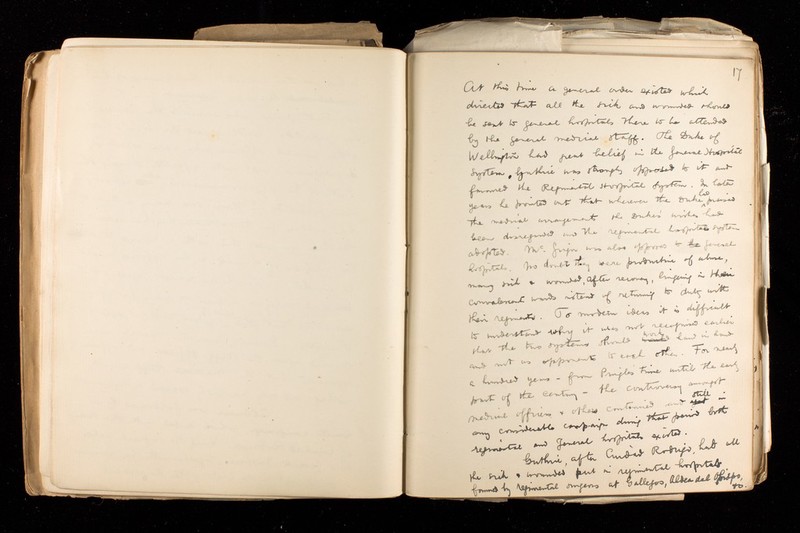 17
At this time a general order existed which
directed that all the sick and wounded should
be sent to general hospitals there to be attended
by the general medical staff. The Duke of
Wellington had great belief in the General Hospital
System. Guthrie was strongly opposed to it and
favoured the Regimental Hospital System. In later
years he pointed out that whenever the Duke had praised
the medical arrangements the Duke's wishes had
been disregarded and the regimental hospital system
adopted. Mr. Grigor was also opposed to the general
hospitals. No doubt they were productive of abuse,
many sick & wounded, after recovery, lingering in their
convalescent wards instead of returning to duty with
their regiments. To modern ideas it is difficult
to understand why it was not recognised earlier
that the two systems should work hand in hand
and not as opponents to each other. For nearly
a hundred years - from Pringle's time until the early
part of the century - the controversy amongst
medical officers & others continued and still in
any considerable campaign during that period both
regimental and General hospitals existed.
Guthrie, after Ciudad Rodrigo, had all
the sick & wounded put in regimental hospitals
formed by regimental surgeons at Gallegos, Aldea del Obispo,
&c.